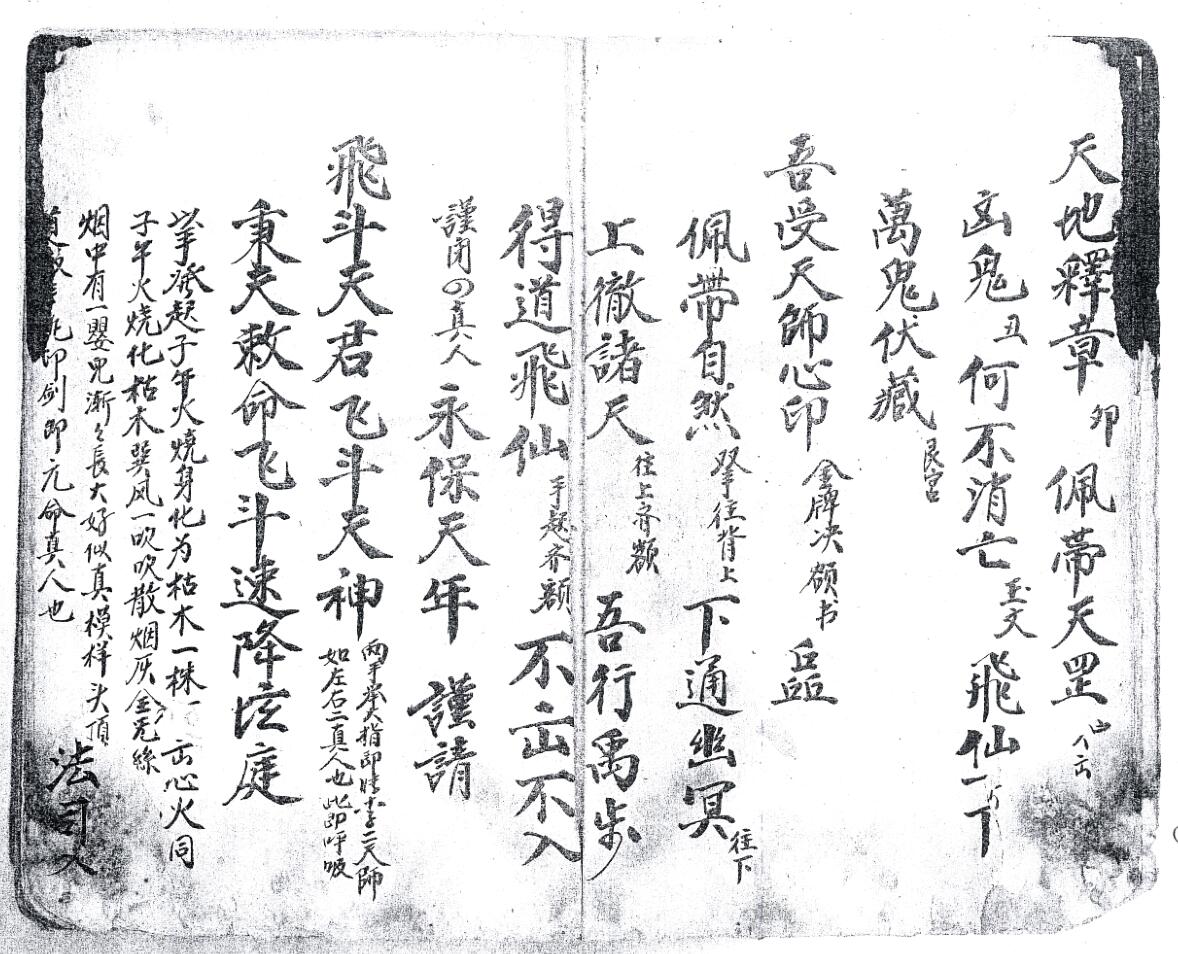 天地釋章 卯 佩帶天罡
凶鬼 丑 何不消亡 玉文 飛仙一下
萬鬼伏藏 艮宮
吾受天師心印 金牌决额书
佩帶自然 双手往背上 下通幽冥 往下
上徹諸天 往上齐额 吾行禹步
得道飛仙 手起齐额 不出不入
謹閉の真人 永保天年 謹請
飛斗天君飞斗天神 两手掌大指即 二天師
如左右二真人也此即呼吸
秉天敕命飞斗速降坛庭
掌发起子午火烧身化为枯木一株 心火同
子午火烧化枯木巽风一吹吹散烟灰 金光 絲
烟中有一嬰兒漸々長大好似真模样头顶
印剑即元命真人也
法司